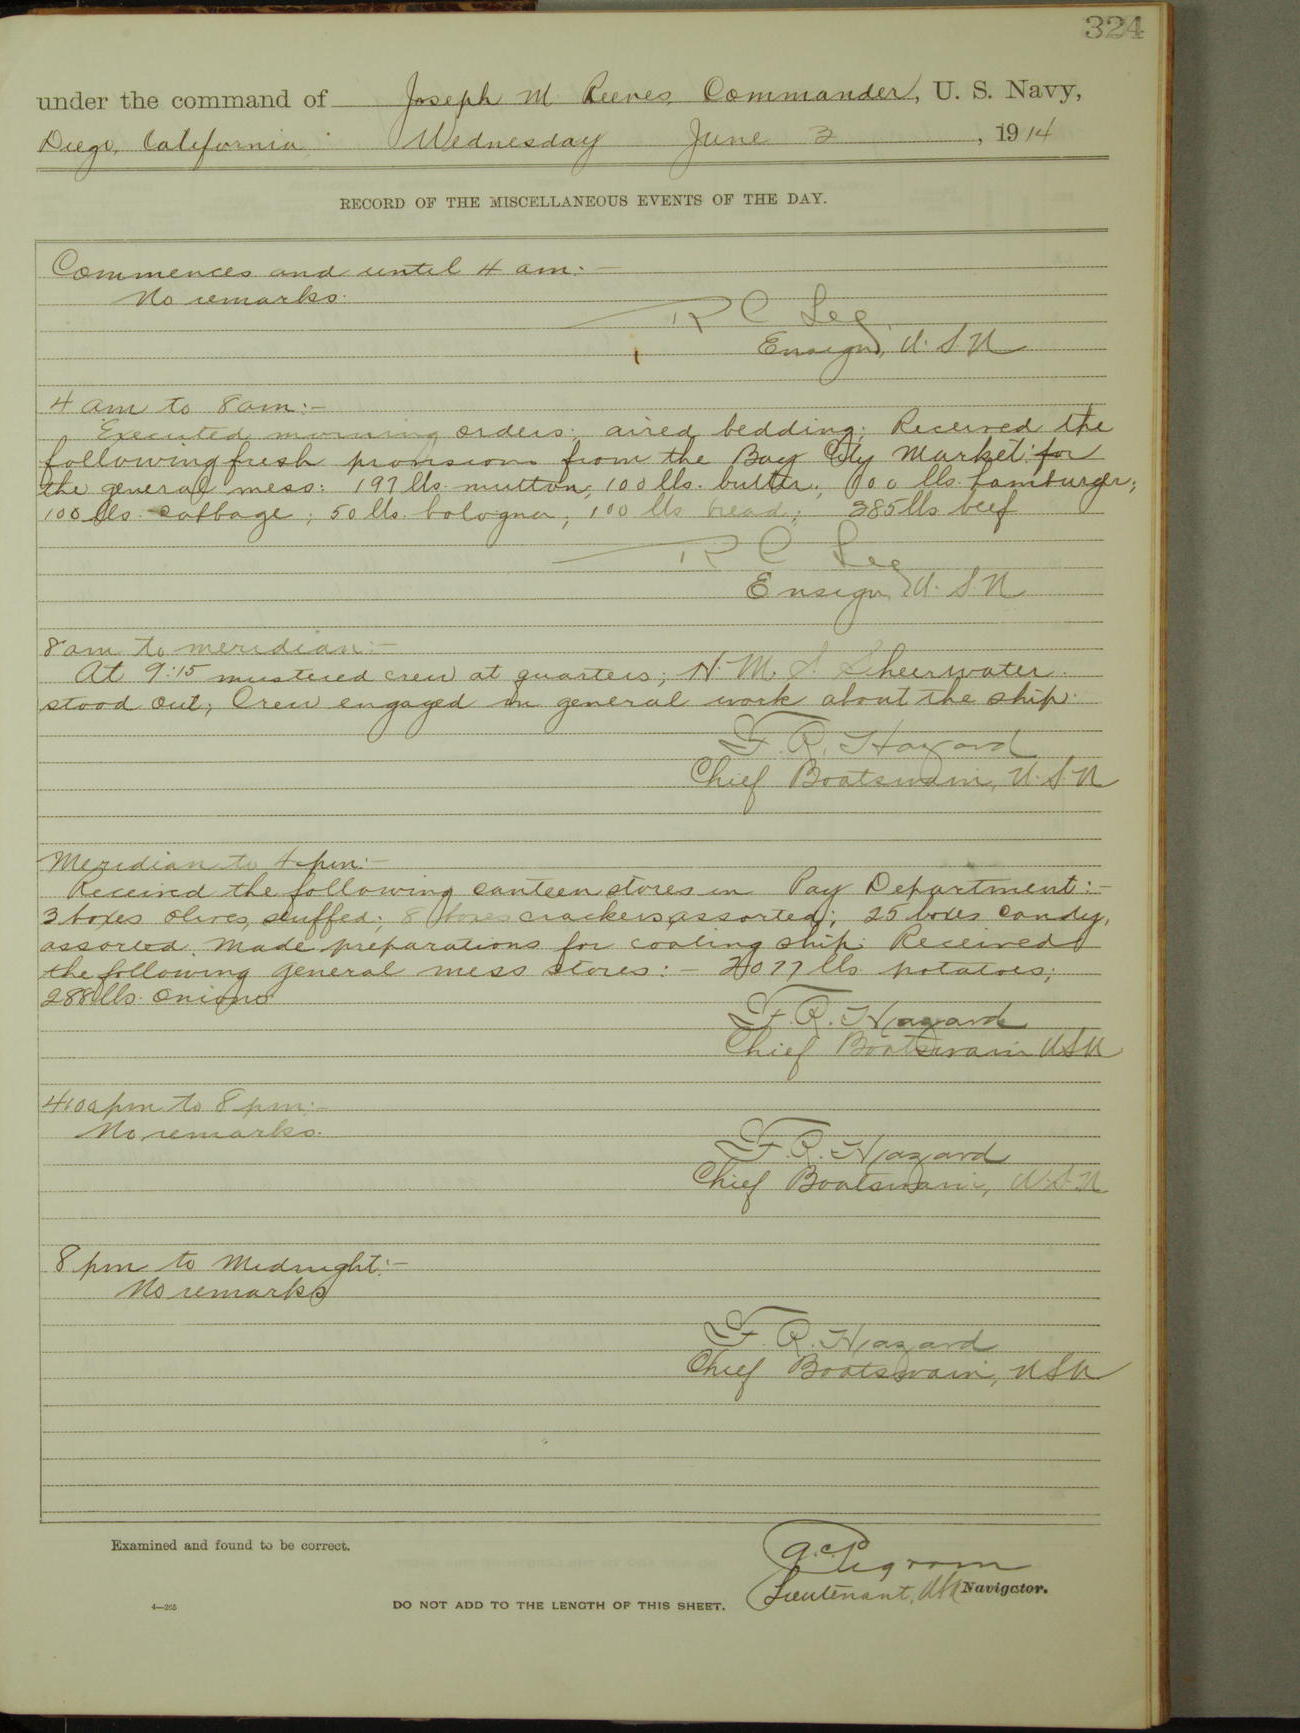 324
under the command of Joseph M Reeves, Commander, U. S. Navy,
Diego, California, Wednesday June 3, 1914
RECORD OF THE MISCELLANEOUS EVENTS OF THE DAY.
Commences and until 4 am:-
No remarks.
R C Lee,
Ensign, U. S. N
4 am to 8 am:-
Executed morning orders; aired bedding; Received the
following fresh provisions from the Bay City Market for
the general mess: 197 lbs. mutton; 100 lbs. butter; 100 lbs. hamburger;
100 lbs. cabbage; 50 lbs. bologna; 100 lbs bread; 385 lbs beef
R C Lee
Ensign, U. S. N
8 am to meridian:-
At 9:15 mustered crew at quarters; H. M. S. Sheerwater
stood out; Crew engaged in general work about the ship.
F. R. Hazard
Chief Boatswain, U. S. N
Meridian to 4 pm:-
Received the following canteen stores in Pay Department:-
3 boxes olives, stuffed; 8 boxes crackers, assorted; 25 boxes candy,
assorted. Made preparations for coaling ship. Received
the following general mess stores:- 2077 lbs potatoes;
288 lbs. onions
F. R. Hazard
Chief Boatswain USN
4:00 pm to 8 pm:-
No remarks.
F. R. Hazard
Chief Boatswain, U. S. N
8 pm to Midnight:-
No remarks
F. R. Hazard
Chief Boatswain, USN
Examined and found to be correct.
Lieutenant, USN Navigator.
4—265
DO NOT ADD TO THE LENGTH OF THIS SHEET.